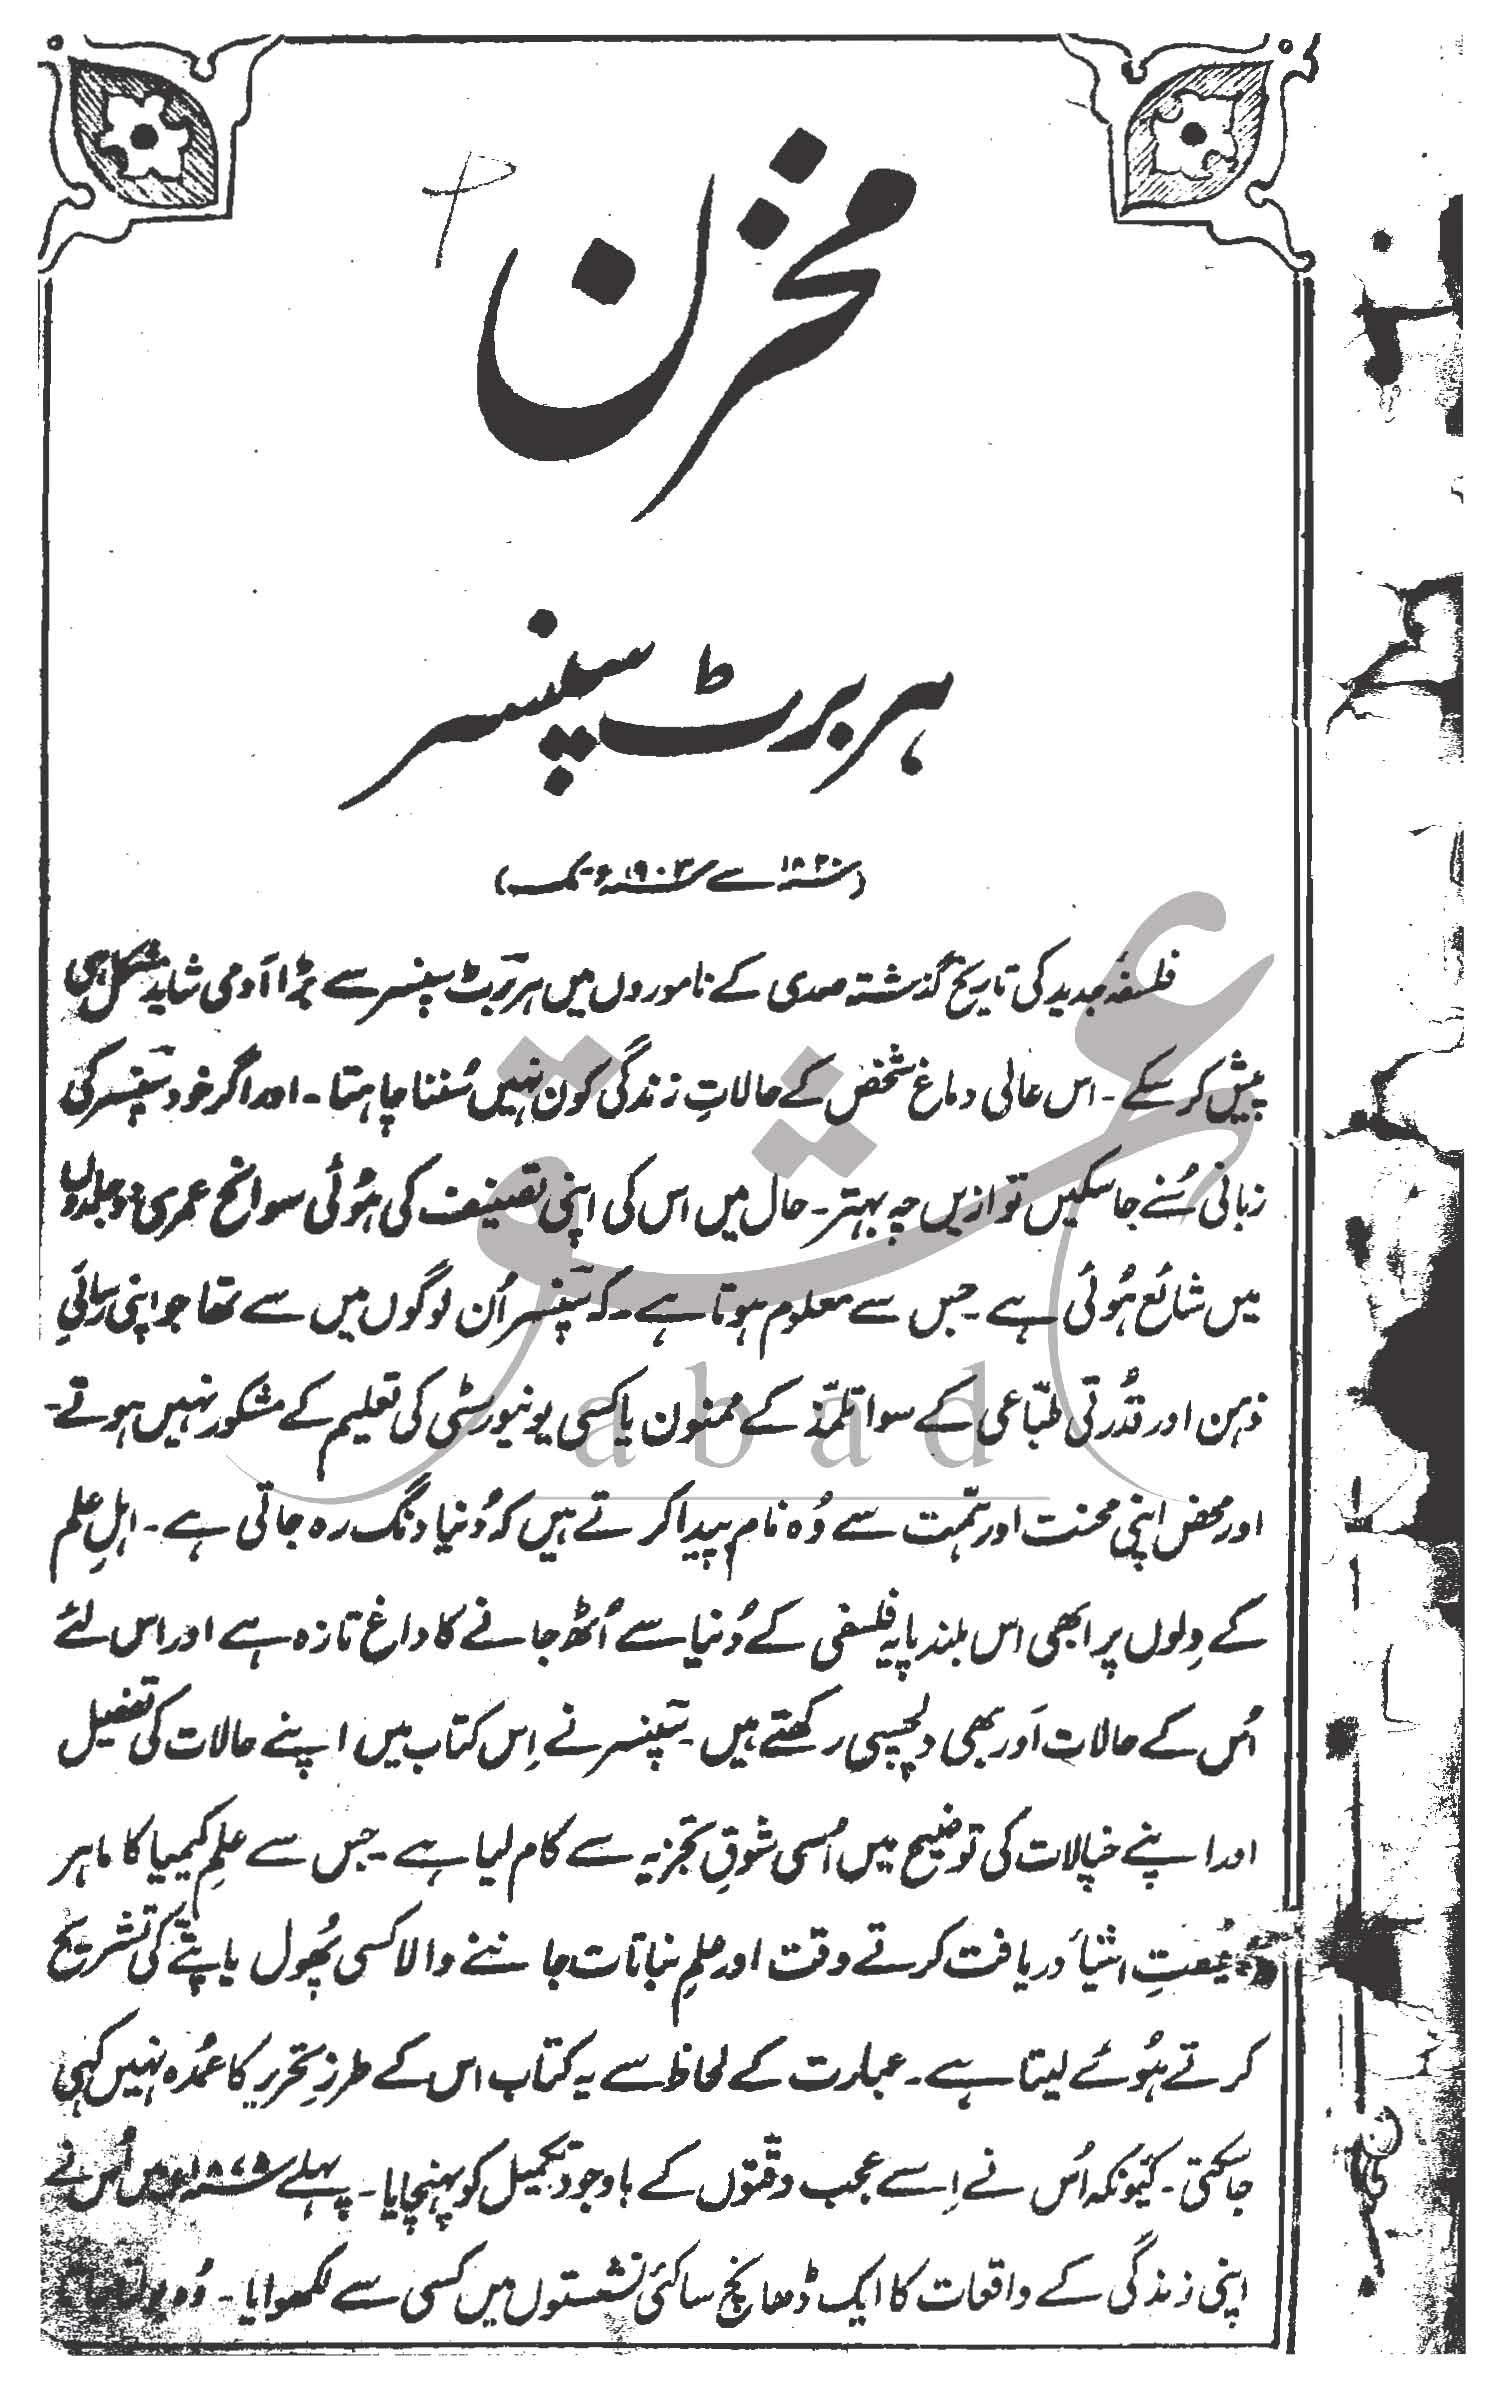 مخزن
ہربرٹ سپنسر
(سنہ ۱۸۲۰ سے سنہ ۱۹۰۳ء تک)
فلسفۂ جدید کی تاریخ گذشتہ صدی کے ناموروں میں ہربرٹ سپنسر سے بڑا آدمی شاید مشکل ہی
پیش کر سکے۔ اس عالی دماغ شخص کے حالاتِ زندگی کون نہیں سُننا چاہتا۔ اور اگر خود سپنسر کی
زبانی سُنے جا سکیں تو ازیں چہ بہتر۔ حال میں اس کی اپنی تصنیف کی ہُوئی سوانح عمری دو جلدوں
میں شائع ہُوئی ہے۔ جس سے معلوم ہوتا ہے۔ کہ سپنسر اُن لوگوں میں سے تھا جو اپنی رسائیِ
ذہن اور قُدرتی طبّاعی کے سوا تلمّذ کے ممنون یا کسی یونیورسٹی کی تعلیم کے مشکور نہیں ہوتے۔
اور محض اپنی محنت اور ہمّت سے وُہ نام پیدا کرتے ہیں کہ دُنیا دنگ رہ جاتی ہے۔ اہلِ علم
کے دِلوں پر ابھی اس بلند پایہ فلسفی کے دُنیا سے اُٹھ جانے کا داغ تازہ ہے اور اس لئے
اُس کے حالات اَور بھی دلچسپی رکھتے ہیں۔ سپنسر نے اِس کتاب میں اپنے حالات کی تفصیل
اور اپنے خیالات کی توضیح میں اُسی شوقِ تجزیہ سے کام لیا ہے۔ جس سے علمِ کیمیا کا ماہر
اشیأ دریافت کرتے وقت اور علمِ نباتات جاننے والا کسی پُھول یا پتّے کی تشریح
کرتے ہُوئے لیتا ہے۔ عبارت کے لحاظ سے یہ کتاب اس کے طرزِ تحریر کا عمُدہ نہیں کہی
جا سکتی۔ کیونکہ اُس نے اِسے عجب دقّتوں کے باوجود تکمیل کو پہنچایا۔ پہلے سنہ ۱۸۷۵ء میں اُس نے
اپنی زندگی کے واقعات کا ایک ڈھانچ سا کئی نشستوں میں کسی سے لکھوایا۔ وُہ بولتا جاتا